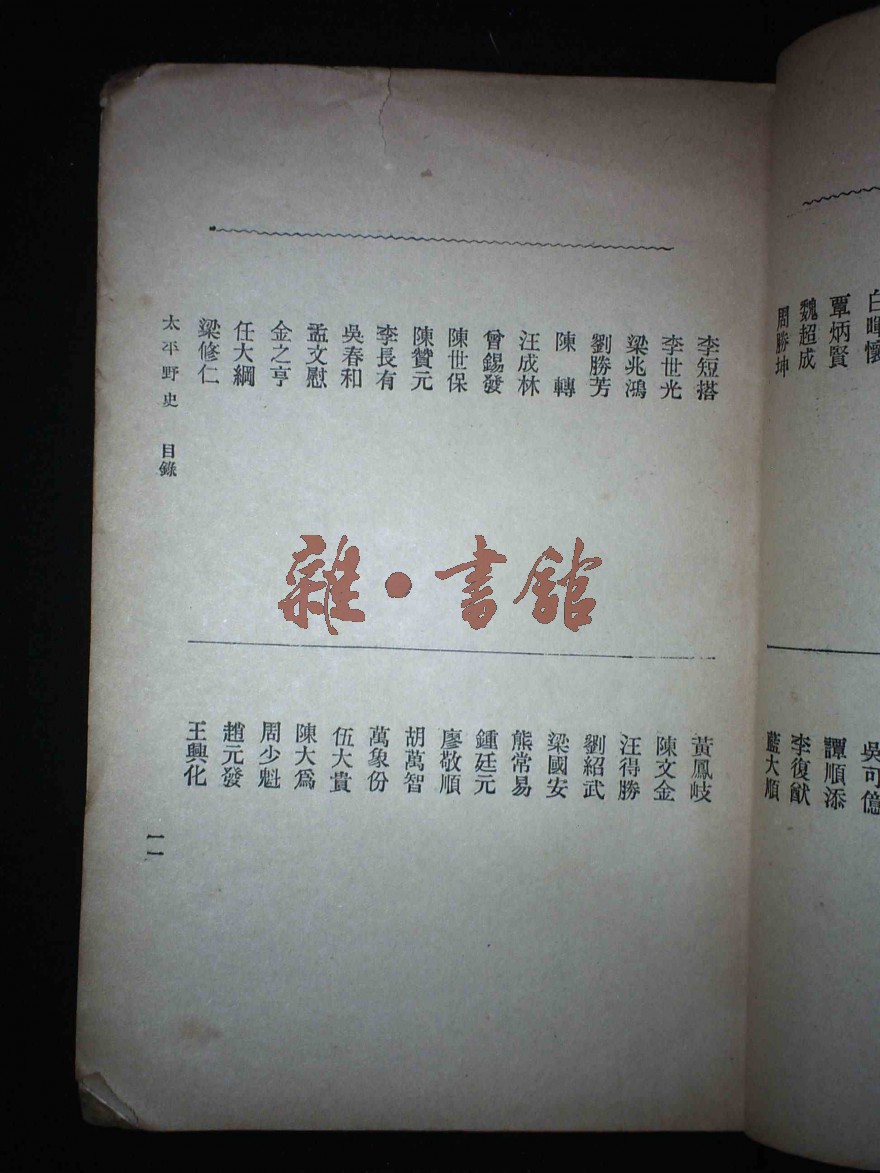 白暉懷
覃炳賢
魏超成
周勝坤
吳可億
譚順添
李復猷
藍大順
李短搭
李世光
梁兆鴻
劉勝芳
陳轉
汪成林
曾錫發
陳世保
陳贊元
李長有
吳春和
孟文慰
金之亨
任大綱
梁修仁
黃鳳岐
陳文金
汪得勝
劉紹武
梁國安
熊常易
鍾廷元
廖敬順
胡萬智
萬象份
伍大貴
陳大爲
周少魁
趙元發
王興化
太平野史 目錄
一一
雜·書館